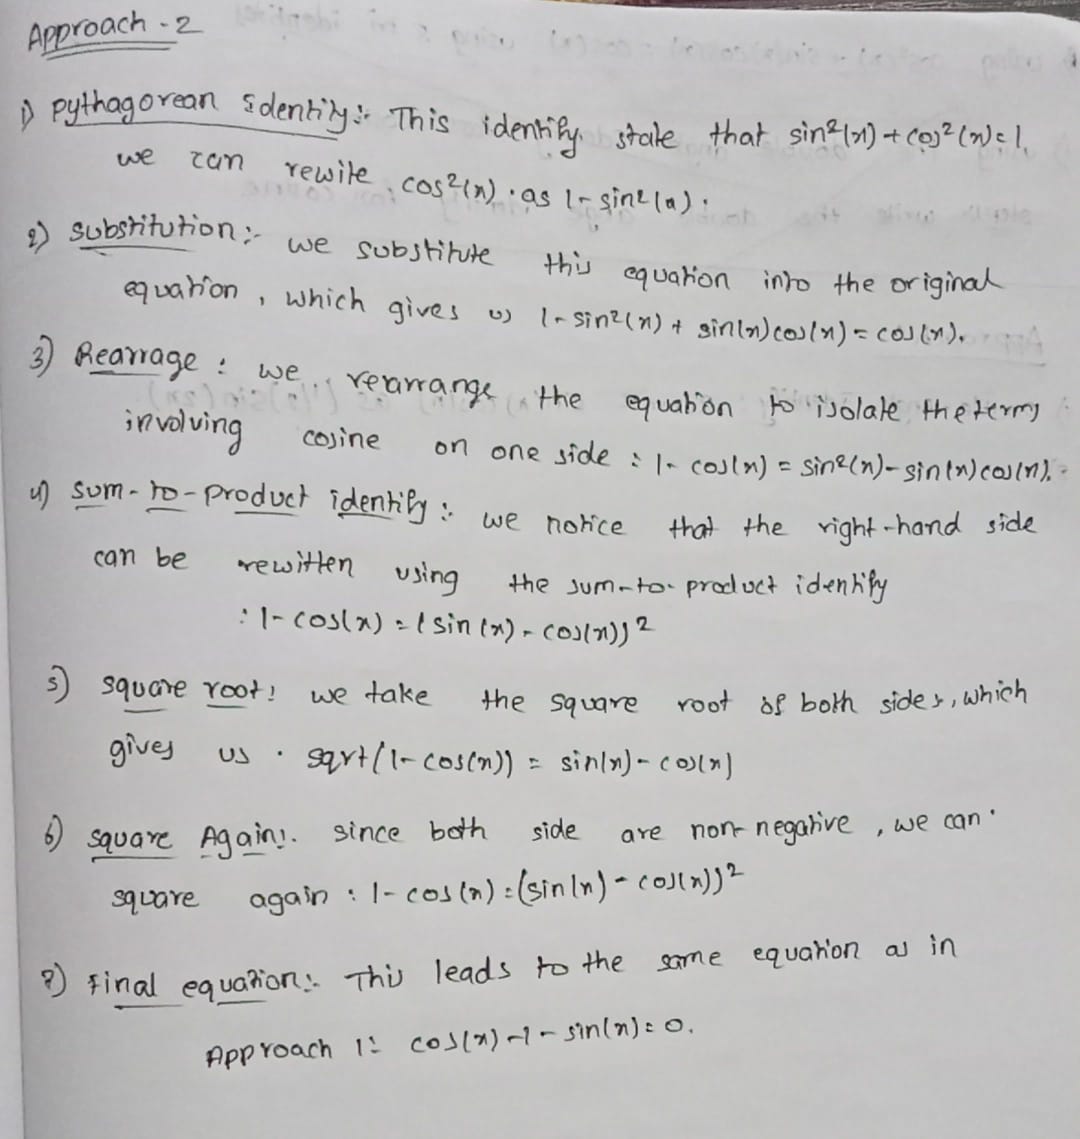 Approach - 2
1) pythagorean identity:- This identify state that sin²(x) + cos²(x) = 1.
we can rewite cos²(x) . as 1 - sin²(x) .
2) substitution:- we substitute this equation into the original
equation, which gives us 1 - sin²(x) + sin(x) cos(x) = cos(x).
3) Rearrage : we rearrange the equation to isolate the terms
involving cosine on one side : 1 - cos(x) = sin²(x) - sin(x) cos(x).
4) sum-to-product identify :- we notice that the right-hand side
can be rewitten using the sum-to-product identify
: 1 - cos(x) = (sin(x) - cos(x))²
5) square root: we take the square root of both sides, which
gives us . sqrt(1 - cos(x)) = sin(x) - cos(x)
6) square Again:. since both side are non-negative, we can .
square again : 1 - cos(x) = (sin(x) - cos(x))²
7) Final equation:- This leads to the same equation as in
Approach 1:- cos(x) - 1 - sin(x) = 0.